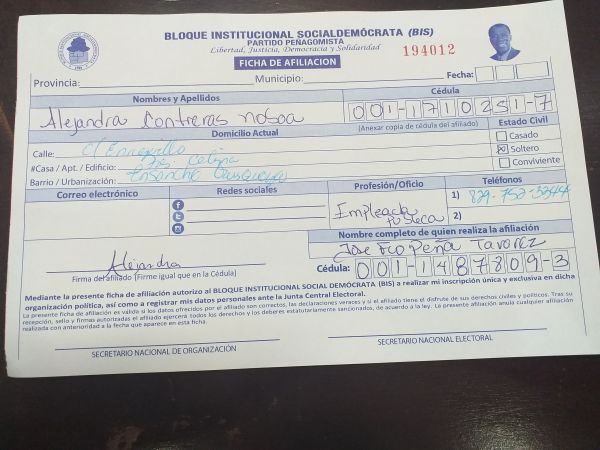 BLOQUE INSTITUCIONAL SOCIALDEMÓCRATA (BIS)
PARTIDO PEÑAGOMISTA
Libertad, Justicia, Democracia y Solidaridad
FICHA DE AFILIACION
194012
Provincia: Municipio: Fecha:
Nombres y Apellidos Cédula
Alejandra Contreras Nosoa 001-1710251-7
Domicilio Actual (Anexar copia de cédula del afiliado) Estado Civil
Calle: C/ Enriquillo Casado
#Casa / Apt. / Edificio: Celina Soltero
Barrio / Urbanización: Ensanche Conviviente
Correo electrónico Redes sociales Profesión/Oficio Teléfonos
1) 829-752-5344
Empleada 2)
Pública
Nombre completo de quien realiza la afiliación
Jose Fco Peña Tavarez
Alejandra
Cédula: 001-1487809-3
Firma del afiliado (Firme igual que en la Cédula)
Mediante la presente ficha de afiliación autorizo al BLOQUE INSTITUCIONAL SOCIAL DEMÓCRATA (BIS) a realizar mi inscripción única y exclusiva en dicha
organización política, así como a registrar mis datos personales ante la Junta Central Electoral.
La presente ficha de afiliación es válida si los datos ofrecidos por el afiliado son correctos, las declaraciones veraces y si el afiliado tiene el disfrute de sus derechos civiles y políticos. Tras su
recepción, sello y firmas autorizadas el afiliado ejercerá todos los derechos y los deberes estatutariamente sancionados, de acuerdo a la ley. La presente afiliación anula cualquier afiliación
realizada con anterioridad a la fecha que aparece en esta ficha.
SECRETARIO NACIONAL DE ORGANIZACIÓN SECRETARIO NACIONAL ELECTORAL